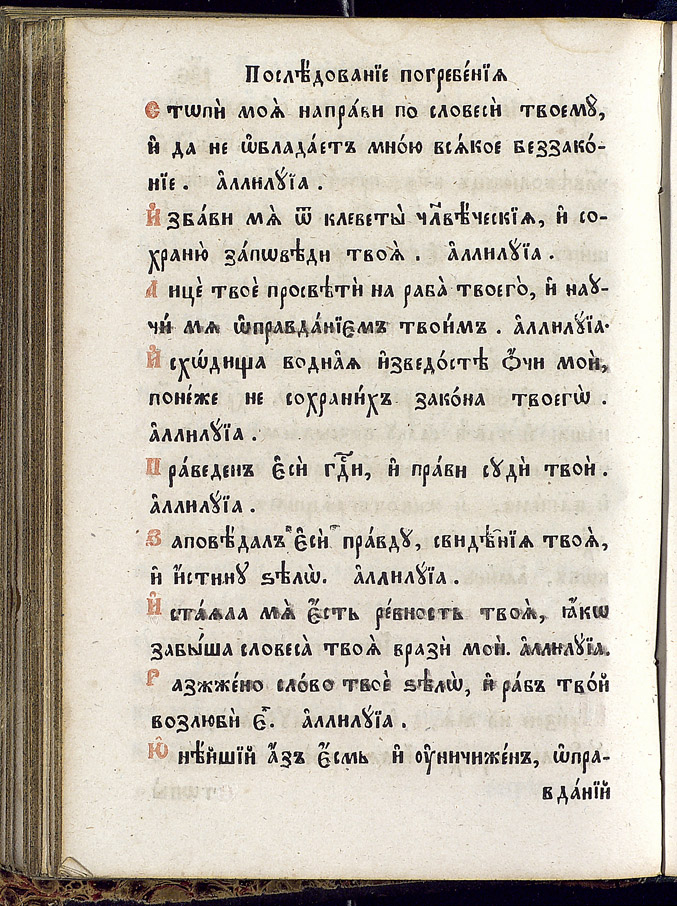 Послѣ́дованїе погребе́нїѧ
Стѡпы̀ моѧ̑ напра́ви по словесѝ твоемꙋ̀,
и҆ да не ѡ҆блада́етъ мно́ю всѧ́кое беззако́-
нїе . а҆ллилꙋ́їа .
И҆зба́ви мѧ̀ ѿ клеветы̀ чл҃вѣ́ческїѧ, и҆ со-
храню̀ за́пѡвѣди твоѧ̑ . а҆ллилꙋ́їа .
Лицѐ твоѐ просвѣтѝ на раба̀ твоего̀, и҆ наꙋ-
чи́ мѧ ѡ҆правда́нїємъ твои̑мъ . а҆ллилꙋ́їа.
И҆схѡ́дища водна̑ѧ и҆зведо́стѣ ѻ҆́чи моѝ,
поне́же не сохрани́хъ зако́на твоегѡ̀ .
а҆ллилꙋ́їа .
Пра́веденъ є҆сѝ гдⷭ҇и, и҆ пра́ви сꙋдѝ твоѝ .
а҆ллилꙋ́їа .
Заповѣ́далъ є҆сѝ пра́вдꙋ, свидѣ̑нїѧ твоѧ̑,
и҆ и҆́стинꙋ ѕѣлѡ̀. а҆ллилꙋ́їа .
И҆ста́ѧла мѧ̀ є҆́сть ре́вность твоѧ̀, ꙗ҆́кѡ
забы́ша словеса̀ твоѧ̑ вразѝ моѝ. а҆ллилꙋ́їа.
Разжже́но сло́во твоѐ ѕѣлѡ̀, и҆ ра́бъ тво́й
возлюбѝ є҆̀. а҆ллилꙋ́їа .
Ю҆нѣ́йшїй а҆́зъ є҆́смь и҆ ᲂу҆ничиже́нъ, ѡ҆пра-
вда́нїй